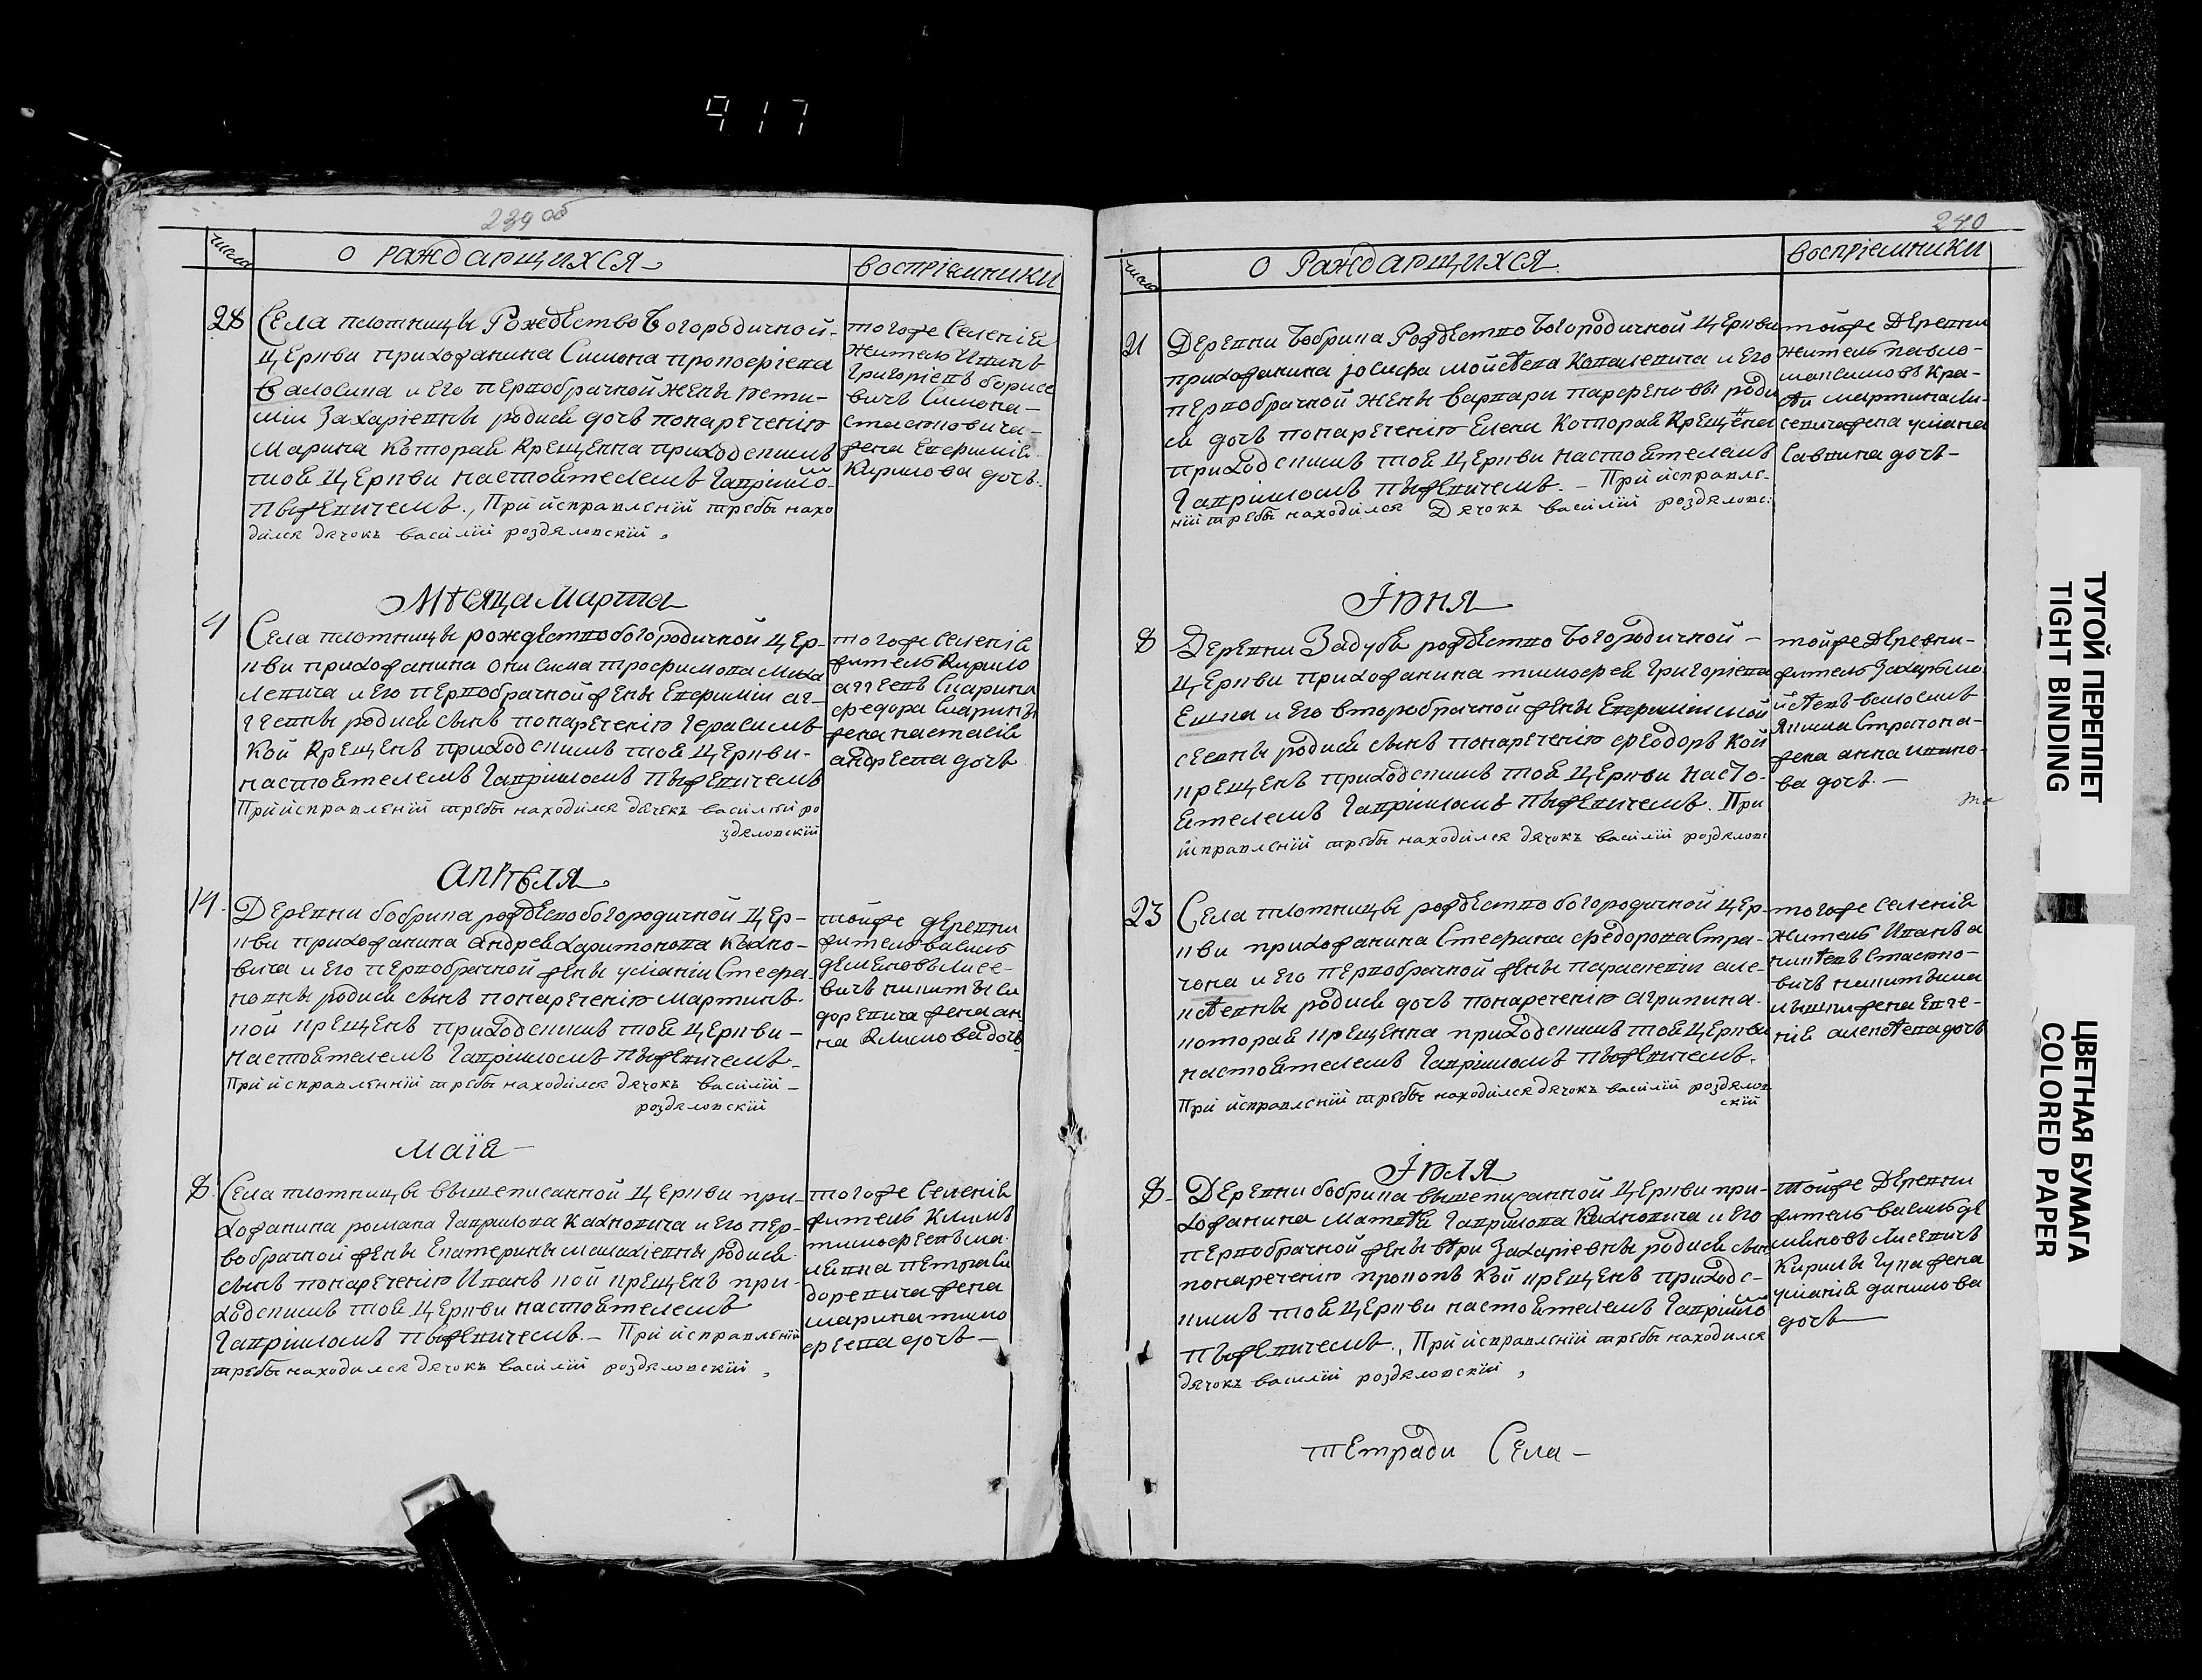 917
239 об
число
О РАЖДАЮЩИХСЯ
воспріемники
28
Села плотницы Рожедество Богородичной
Церкви прихожанина Симона прокофіева
Валосина и Его первобрачной жены
Захаріевны родися дочь понареченію
Марина Которая Крещенна приходскимъ
тоя Церкви настоятелемъ Гавріило
При исправленіи требы нахо
дился дячокъ василій роздяловскій
тогоже Селенія
житель Иванъ
Григоріевъ борисе
вичъ Симона
жена Евфимія
Кирилова дочь
Мѣсяца Марта
4
Села плотницы рождество богородичной Цер-
кви прихожанина Онисима трофимова Миха
левича и Его первобрачной жены Евфиміи аг-
гѣевны родися сынъ понареченію Герасимъ
Кой Крещенъ приходскимъ тоя Церкви
настоятелемъ Гавріиломъ
При исправленіи требы находился дячекъ василій ро
здяловскій
тогоже Селенія
житель Кирило
аггеевъ
федора
жена настасія
андреева дочь
Апрѣля
14
Деревни бобрика рождество богородичной Цер-
кви прихожанина андрея харитонова Кахно-
вича и Его первобрачной жены уліаніи Стефа
новны родися сынъ понареченію Мартинъ
кой крещенъ приходскимъ тоя Церкви
настоятелемъ Гавріиломъ
При исправленній требы находился дячокъ василій
роздяловскій
тойже деревни
житель василь
деменовъ Лисе-
вичъ никиты си
доревича жена ан
на Климова дочь
Маія
8
Села плотницы вышеписанной Церкви при-
хожанина романа Гаврилова Кахновича и Его пер-
вобрачной жены Екатерины малахіевны родися
сынъ понареченію Иванъ кой крещенъ при-
ходскимъ тоя Церкви настоятелемъ
Гавріиломъ При исправленій
требы находился дячокъ василій роздяловскій
тогоже Селенія
житель Климъ
тимофеевъ
петра си
доревича жена
марина тимо
фіева дочь
240
число
О РАЖДАЮЩИХСЯ
воспріемники
21
Деревни Бобрика Рождество Богородичной Церкви
прихожанина іосифа мойсѣева Ковалевича и Его
первобрачной жены варвары парфеновы роди
ся дочь понареченію Елена Которая Крещена
приходскимъ тоя Церкви настоятелемъ
Гавріиломъ При исправле-
ній требы находился Дячокъ василій роздяловс
тойже Деревни
житель павло
максимовъ Кра-
мартина Ли-
севича жена уліана
Савкина дочь
Іюня
8
Деревни Задубя рождество Богородичной
Церкви прихожанина тимофея Григоріева
и Его второбрачной жены Евфиміи мой
сеевны родися сынъ понареченію феодоръ Кой
крещенъ приходскимъ тоя Церкви насто-
ятелемъ Гавріиломъ При
исправленій требы находился дячокъ василій роздяловс
тойже Деревни
житель Захарь мо
йсѣевъ
Якима Стратона
жена анна ивано-
ва дочь
23
Села плотницы рождество богородичной Цер-
кви прихожанина Стефана федорова Стра-
чона и Его первобрачной жены параскевіи але-
ксѣевны родися дочь понареченію агрипина
которая крещенна приходскимъ тоя Церкви
настоятелемъ Гавріиломъ
При исправленій требы находился дячокъ василій роздялов
скій
тогоже Селенія
житель Иванъ а
никѣевъ
вичъ никиты
жена Евге-
нія алексѣева дочь
Іюля
8
Деревни бобрика вышеписанной Церкви при-
хожанина Матвѣя Гаврилова Кахновича и Его
первобрачной жены вѣри Захаріевны родися сынъ
понареченію прокопъ кой крещенъ приходс-
кимъ тоя Церкви настоятелемъ Гавріило
При исправленій требы находился
дячокъ василій роздяловскій
тойже Деревни
житель василь де
миновъ Лисевичъ
Кирилы жена
уліанія данилова
дочь
тетради Села
ТУГОЙ ПЕРЕПЛЕТ
TIGHT BINDING
ЦВЕТНАЯ БУМАГА
COLORED PAPER